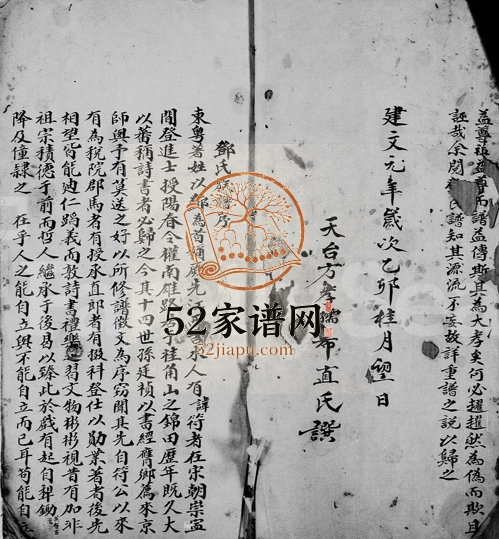 益尊祖益尊而譜益傳斯其為大孝矣何必趑趄然為偽而欺且
誣哉余閱氏譜知其源流不妄故詳重譜之說以歸之
建文元年歲次乙卯桂月望日
天台方孝孺希直氏譔
鄧氏族譜序
東粵著姓以鄧為首稱厥先江水人有諱符者在宋朝崇寧
間登進士授陽春令權南雄路于桂角山之錦田歷年既久大
以蕃稱詩書者必歸之今其十四世孫廷楨以書經膺鄉薦來京
師與予有莫逆之好以所修譜徵文為序窃聞其先自符公以來
有為稅院郡馬者有授承直郎者有掇科登仕以勛業著者後先
相望皆能迪仁蹈義而敦詩書禮樂習文物彬彬視昔有加非
祖宗積德于前而哲人繼承于後易以臻此於戲有起自犁鋤
降及僮隸之 在乎人之能自立與不能自立而已耳苟能自立
52家谱网
52jiapu.com